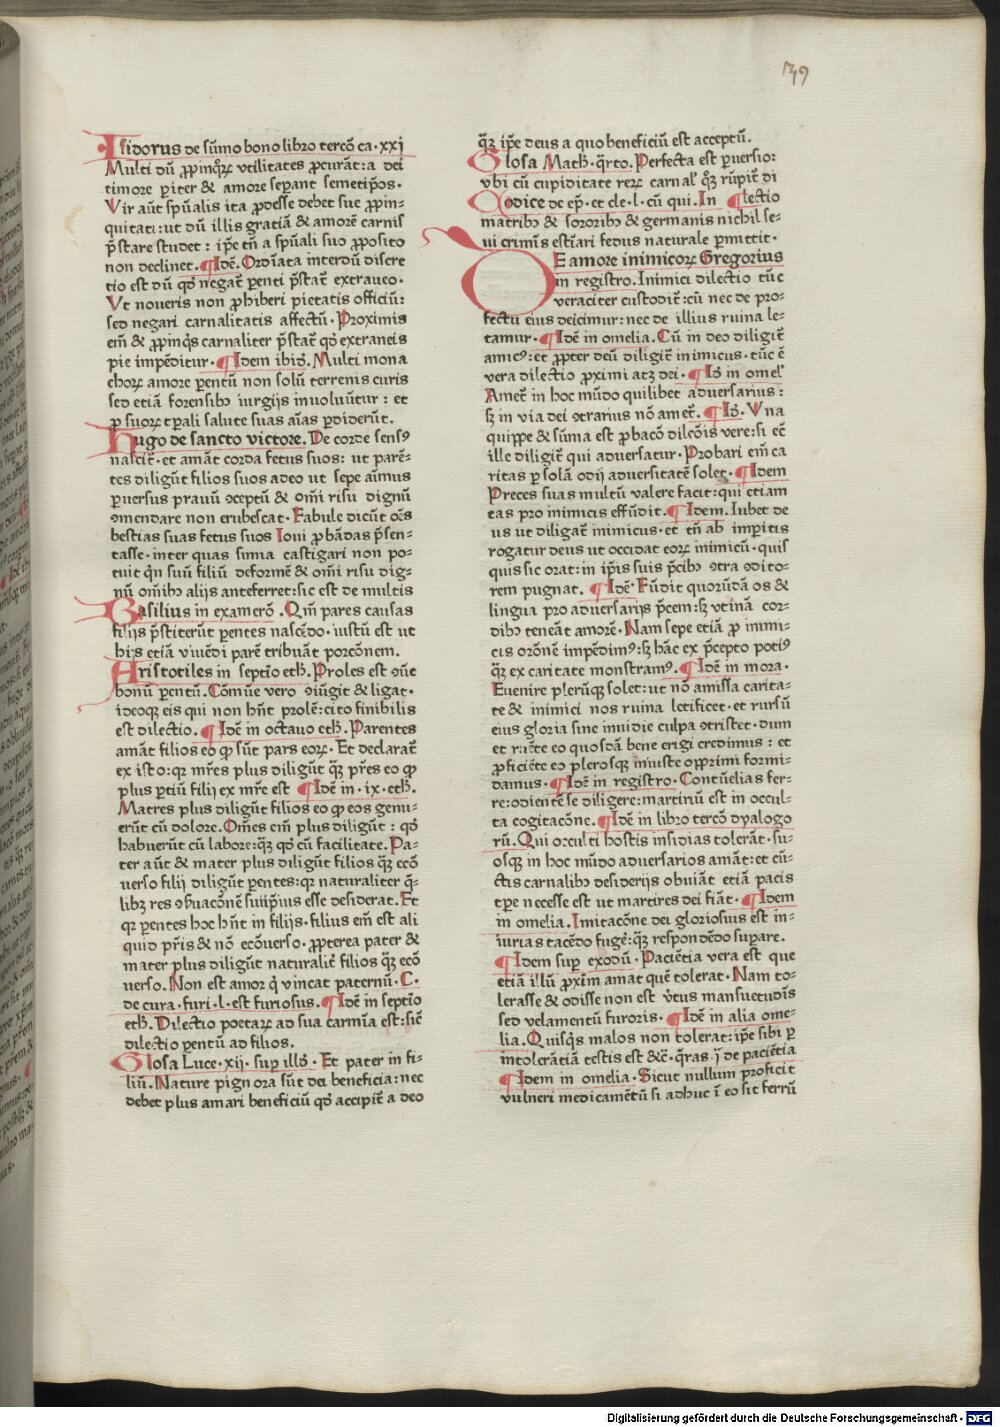 139
Isidorus de sūmo bono libro tercō ca·xxi
Multi dū ꝓpinqꝝ vtilitates ꝓcurāt: a dei
timore ꝑiter & amore seꝑant semetip̄os·
Vir aūt sp̄ualis ita ꝓdesse debet sue ꝓpin-
quitati: ut dū illis gratiā & amorē carnis
p̄stare studet: ip̄e tn̄ a sp̄uali suo ꝓposito
non declinet. Idē. Ordīata interdū discre
tio est dū qd̄ negat̄ ꝑenti p̄stat̄ extraneo·
Vt noueris non ꝓhiberi pietatis officiū:
sed negari carnalitatis affectū· Proximis
em̄ & ꝓpinq̄s carnaliter p̄stat̄ qd̄ extraneis
pie impēditur· Idem ibid̄. Multi mona
choꝝ amore ꝑentū non solū terrenis curis
sed etiā forensibꝫ iurgijs inuoluūtur: et
ꝓ suoꝝ tꝑali salute suas aīas ꝑdiderūt.
Hugo de sancto victore. De corde sensꝰ
nascit̄· et amāt corda fetus suos: ut parē-
tes diligūt filios suos adeo ut sepe aīmus
ꝑuersus prauū ꝯceptū & om̄i risu dignū
ꝯmendare non erubescat· Fabule dicūt oēs
bestias suas fetus suos Ioui ꝓbādas p̄sen-
tasse· inter quas simia castigari non po-
tuit qn̄ suū filiū deformē & om̄i risu dig-
nū om̄ibꝫ alijs anteferret: sic est de multis
Basilius in examerō. Qm̄ pares causas
filijs p̄stiterūt ꝑentes nascēdo· iustū est ut
hijs etiā viuēdi parē tribuāt porcōnem.
Aristotiles in septīo eth̄. Proles est oūe
bonū ꝑentū. Cōmūe vero ꝯiūgit & ligat·
ideoqꝫ eis qui non hn̄t prolē: cito finibilis
est dilectio. Idē in octauo eth̄. Parentes
amāt filios eo ꝙ sūt pars eoꝝ· Et declarat̄
ex isto: qꝛ mr̄es plus diligūt qꝫ pr̄es eo ꝙ
plus ꝑtiū filij ex mr̄e est Idē in·ix·eth̄.
Matres plus diligūt filios eo ꝙ eos genu-
erūt cū dolore. Om̄es em̄ plus diligūt: qd̄
habuerūt cū labore: qꝫ qd̄ cū facilitate. Pa-
ter aūt & mater plus diligūt filios qꝫ ecō
uerso filij diligūt ꝑentes: qꝛ naturaliter q̄-
libꝫ res ꝯẜuacōnē suijpius esse desiderat. Et
qꝛ ꝑentes hoc hn̄t in filijs· filius em̄ est ali
quid pr̄is & nō ecōuerso· ꝓpterea pater &
mater plus diligūt naturalit̄ filios qꝫ ecō
uerso. Non est amor q̄ vincat paternū. C.
de cura·furi·l·est furiosus. Idē in septīo
eth̄. Dilectio poetaꝝ ad sua carmīa est: sic̄
dilectio ꝑentū ad filios.
Glosa Luce·xij·suꝑ illo· Et pater in fi-
liū. Nature pignora sūt dei beneficia: nec
debet plus amari beneficiū qd̄ accipit̄ a deo
qꝫ ip̄e deus a quo beneficiū est acceptū.
Glosa Math̄. q̄rto. Perfecta est ꝑuersio:
vbi cū cupiditate reꝝ carnal̓ qꝫ rūpit̄ di
Codice de ep̄·et cle·l·cū qui. In lectio
matribꝫ & sororibꝫ & germanis nichil se-
ui crimīs estīari fedus naturale ꝑmittit·
De amore inimicoꝝ Gregorius
in registro. Inimici dilectio tūc
veraciter custodit̄: cū nec de pro-
fectu eius deicimur: nec de illius ruina le-
tamur· Idē in omelia. Cū in deo diligit̄
amicꝰ: et ꝓpter deū diligit̄ inimicus· tūc ē
vera dilectio ꝓximi atqꝫ dei· Id̄ in omel̓
Amet̄ in hoc mūdo quilibet aduersarius:
sꝫ in via dei ꝯtrarius nō amet̄. Id̄. Vna
quippe & sūma est ꝓbacō dilcōis vere: si eē
ille diligit̄ qui aduersatur· Probari em̄ ca
ritas ꝑ solā odij aduersitatē solet· Idem
Preces suas multū valere facit: qui etiam
eas pro inimicis effūdit. Idem. Iubet de
us ut diligat̄ inimicus· et tn̄ ab imꝑitis
rogatur deus ut occidat eoꝝ inimicū· quis
quis sic orat: in ip̄is suis p̄cibꝫ ꝯtra ꝯdito-
rem pugnat. Idē· Fūdit quorūdā os &
lingua pro aduersarijs p̄cem: sꝫ vtinā cor-
dibꝫ teneāt amorē· Nam sepe etiā ꝓ inimi-
cis orōnē impēdimꝰ: sꝫ hāc ex p̄cepto potiꝰ
qꝫ ex caritate monstramꝰ. Idē in mora·
Euenire pleruꝫqꝫ solet: ut nō amissa carita-
te & inimici nos ruina letificet· et rursū
eius gloria sine inuidie culpa ꝯtristet· dum
et ruēte eo quosdā bene erigi credimus: et
ꝓficiēte eo plerosqꝫ iniuste opprimi formi-
damus· Idē in registro· Contūelias fer-
re: odientē se diligere: martiriū est in occul-
ta cogitacōne. Idē in libro tercō dyalogo
rū. Qui occulti hostis insidias tolerāt· su-
osqꝫ in hoc mūdo aduersarios amāt: et cū-
ctis carnalibꝫ desiderijs obuiāt etiā pacis
tꝑe necesse est ut martires dei fiāt· Idem
in omelia· Imitacōne dei gloriosius est in-
iurias tacēdo fugē: qꝫ respondēdo suꝑare.
Idem suꝑ exodū· Paciētia vera est que
etiā illū ꝓxim amat quē tolerat· Nam to-
lerasse & odisse non est v̄tus mansuetudīs
sed velamentū furoris· Idē in alia ome-
lia. Quisq̄s malos non tolerat: ip̄e sibi ꝑ
intolerātiā testis est &c̄· q̄ras·ij·de paciētia
Idem in omelia· Sicut nullum proficit
vulneri medicamētū si adhuc ī eo sit ferrū
Digitalisierung gefördert durch die Deutsche Forschungsgemeinschaft · DFG